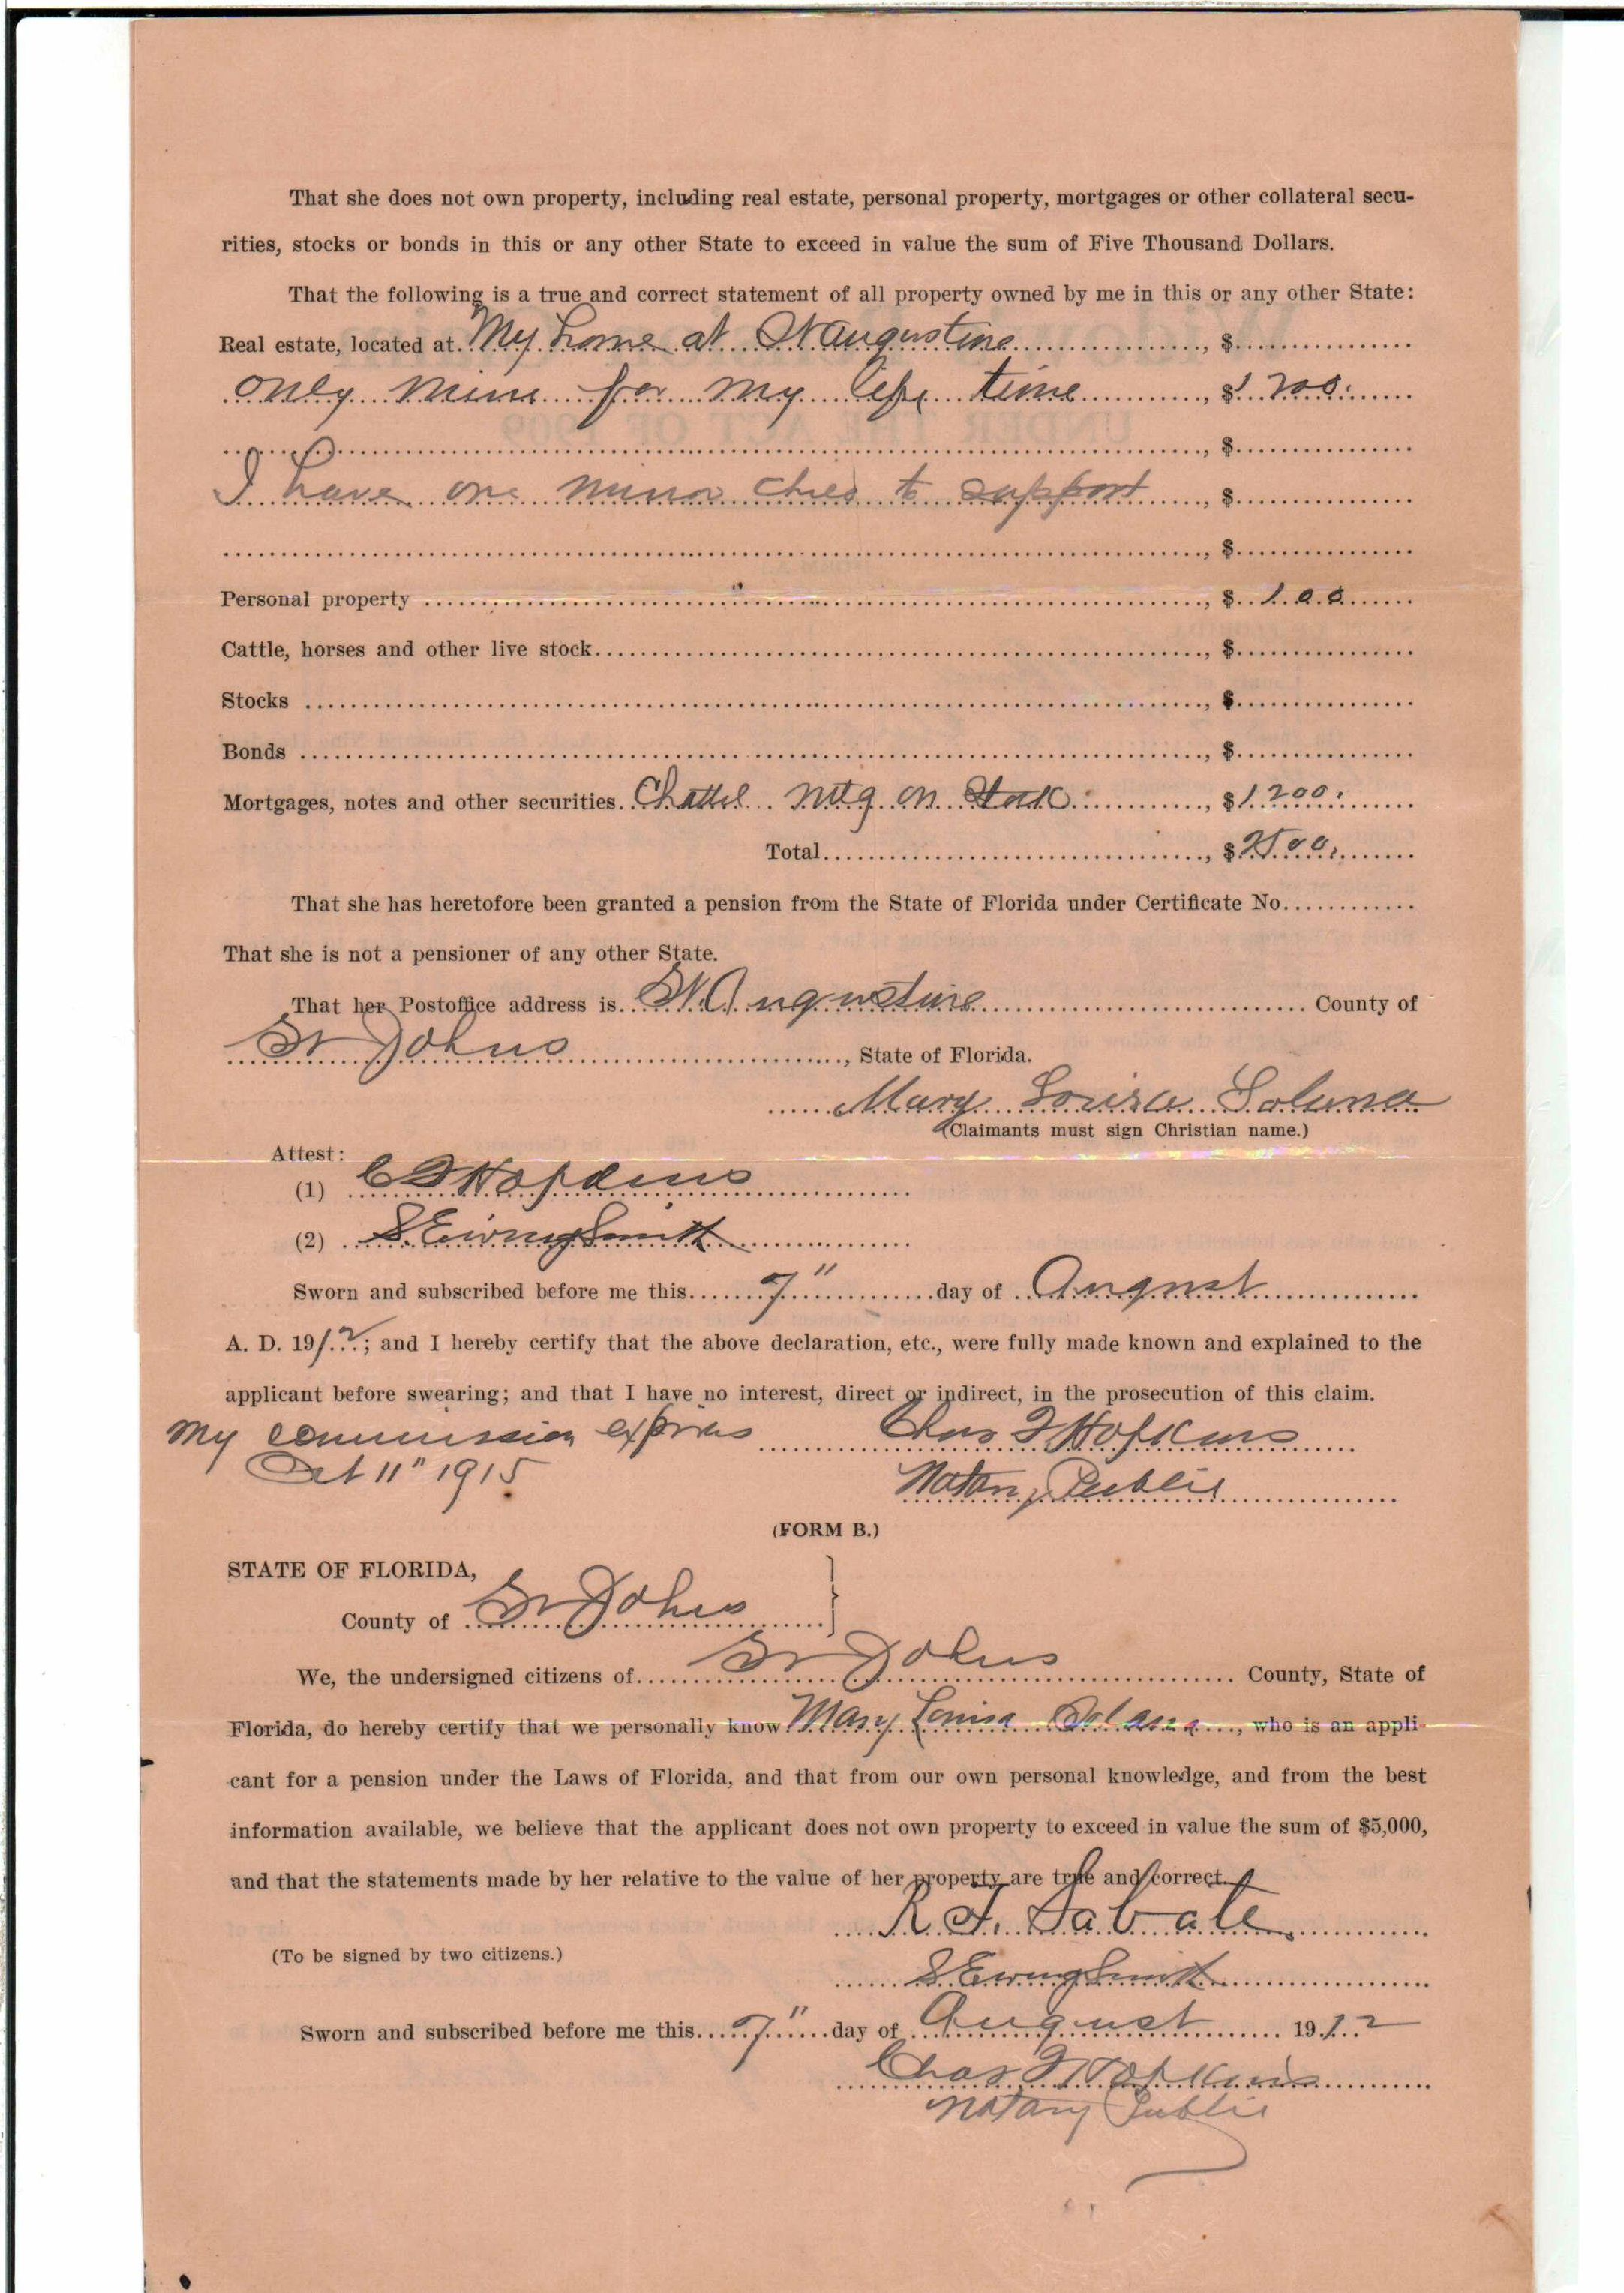 That she does not own property, including real estate, personal property, mortgages or other collateral secu-
rities, stocks or bonds in this or any other State to exceed in value the sum of Five Thousand Dollars.
That the following is a true and correct statement of all property owned by me in this or any other State:
Real estate, located at My home at St Augustine, $
only mine for my life time, $1200.
, $
I have one minor child to support, $
, $
Personal property, $ 100
Cattle, horses and other live stock, $
Stocks, $
Bonds, $
Mortgages, notes and other securities. Chattel mtg on, $1200.
Total, $2500.
That she has heretofore been granted a pension from the State of Florida under Certificate No.
That she is not a pensioner of any other State.
That her Postoffice address is St. Augustine County of
St Johns, State of Florida.
Mary Louisa Solana
(Claimants must sign Christian name.)
Attest:
(1) C F Hopkins
(2) S. Ewing Smith
Sworn and subscribed before me this 7" day of August
A. D. 1912; and I hereby certify that the above declaration, etc., were fully made known and explained to the
applicant before swearing; and that I have no interest, direct or indirect, in the prosecution of this claim.
My commission expires Chas F Hopkins
Oct 11" 1915 Notary Public
(FORM B.)
STATE OF FLORIDA,
County of St Johns
We, the undersigned citizens of St Johns County, State of
Florida, do hereby certify that we personally know Mary Louisa Solana, who is an appli-
cant for a pension under the Laws of Florida, and that from our own personal knowledge, and from the best
information available, we believe that the applicant does not own property to exceed in value the sum of $5,000,
and that the statements made by her relative to the value of her property are true and correct.
R. F. Sabate
(To be signed by two citizens.)
S Ewing Smith
Sworn and subscribed before me this 7" day of August 1912
Chas F Hopkins
Notary Public